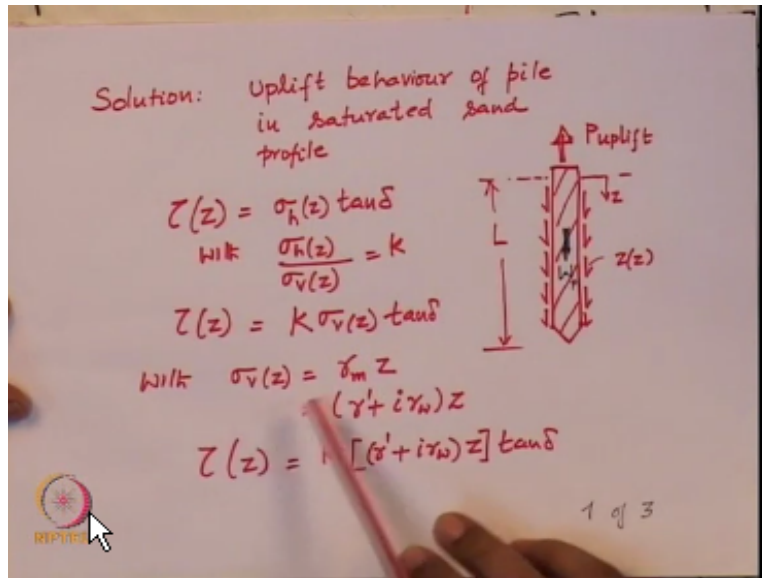 Solution: Uplift behaviour of pile
in saturated sand
profile
Puplift
τ(z) = σh(z) tanδ
z
with σh(z)/σv(z) = K
L
W
τ(z)
τ(z) = Kσv(z) tanδ
with σv(z) = γm z
= (γ'+ iγw) z
τ(z) = [(γ'+ iγw) z] tanδ
1 of 3
NPTEL